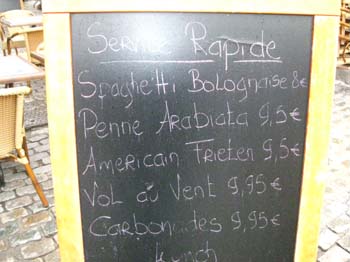 Service Rapide
Spaghetti Bolognaise 8€
Penne Arabiata 9,5€
American Frieten 9,5€
Vol au Vent 9,95€
Carbonades 9,95€
Lunch